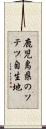 鹿児島県のソテツ自生地